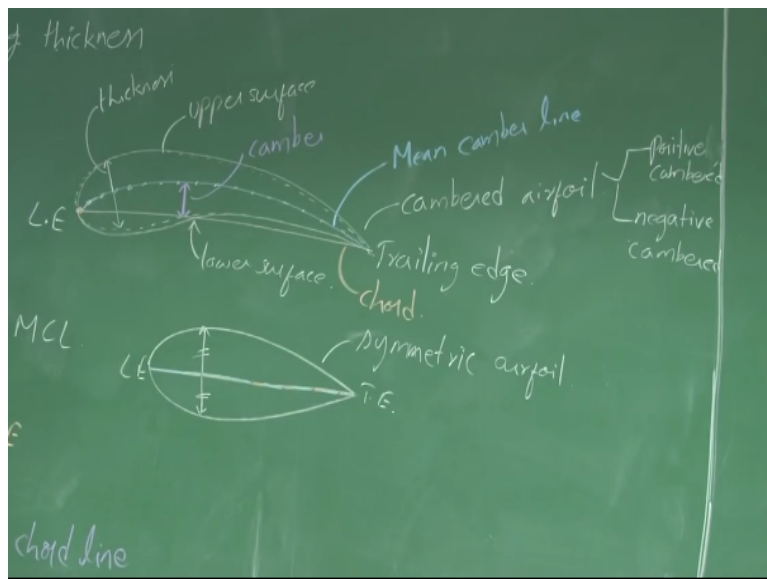 thickness
thickness
upper surface
camber
Mean camber line
L.E
cambered airfoil
positive
cambered
negative
cambered
lower surface.
Trailing edge.
chord.
MCL
LE
symmetric airfoil
T.E.
E
chord line